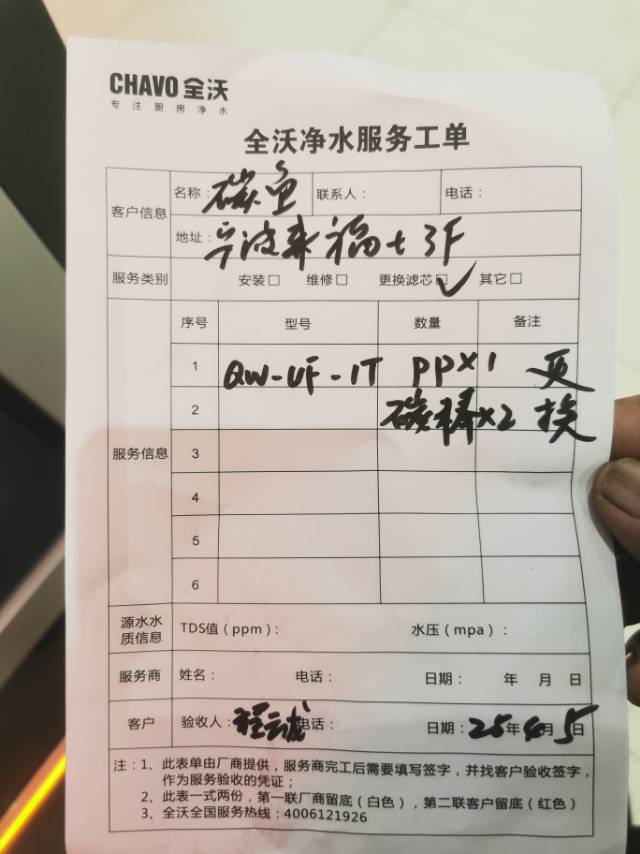 CHAVO 全沃
专注厨房净水
全沃净水服务工单
客户信息 名称：碳鱼 联系人： 电话：
地址：宁波来福士3F
服务类别 安装□ 维修□ 更换滤芯□✓ 其它□
服务信息 序号 型号 数量 备注
1 QW-UF-1T PP×1 更
2 碳棒×2 换
3
4
5
6
源水水质信息 TDS值（ppm）： 水压（mpa）：
服务商 姓名： 电话： 日期： 年 月 日
客户 验收人：程云成 电话： 日期：25年4月5日
注：1、此表单由厂商提供，服务商完工后需要填写签字，并找客户验收签字，
作为服务验收的凭证；
2、此表一式两份，第一联厂商留底（白色），第二联客户留底（红色）
3、全沃全国服务热线：4006121926